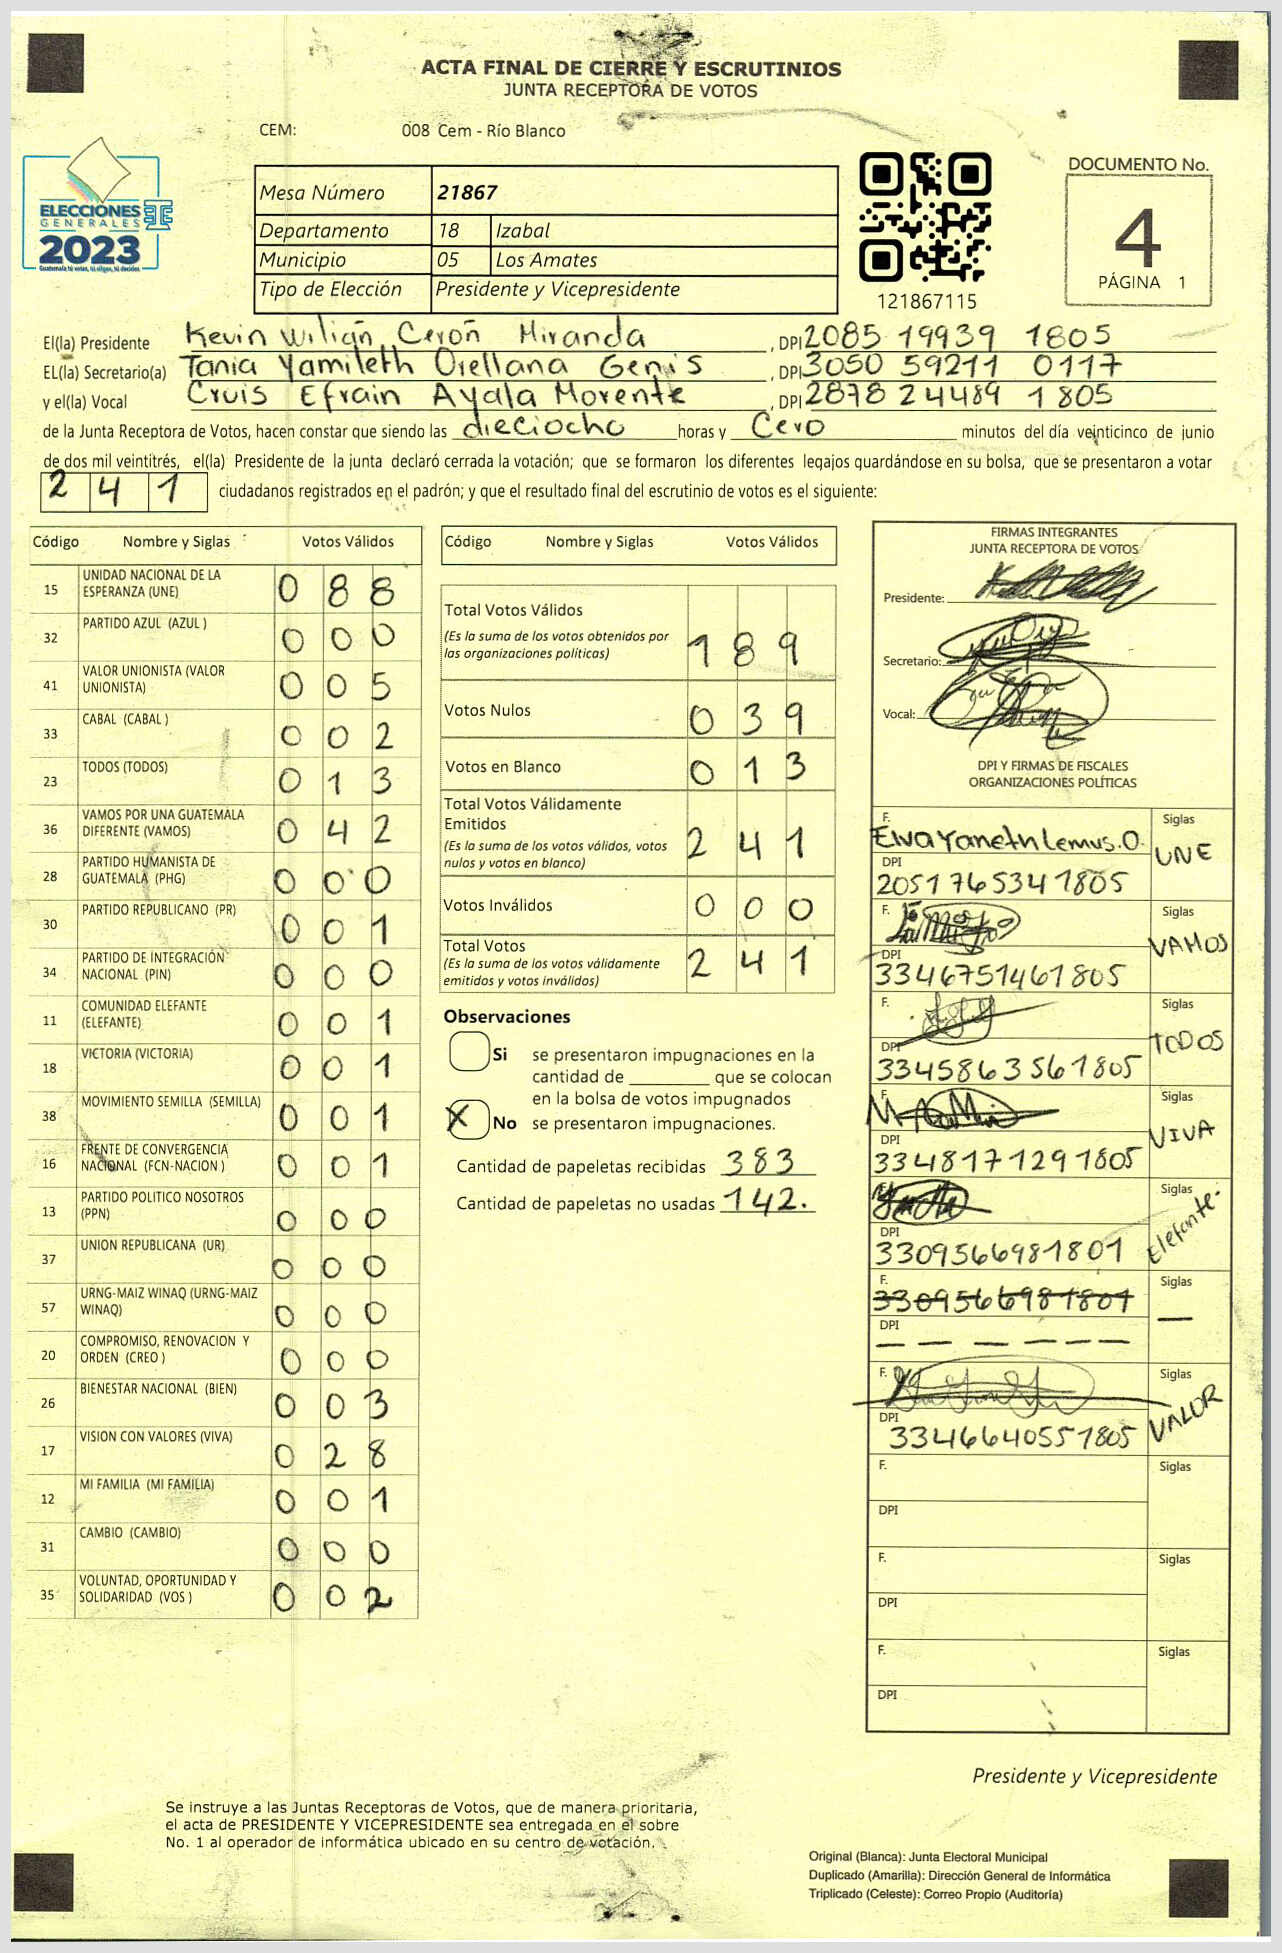 ACTA FINAL DE CIERRE Y ESCRUTINIOS
JUNTA RECEPTORA DE VOTOS
CEM: 008 Cem - Río Blanco
ELECCIONES
GENERALES
2023
Guatemala tú votas, tú eliges, tú decides
Mesa Número 21867
Departamento 18 Izabal
Municipio 05 Los Amates
Tipo de Elección Presidente y Vicepresidente
121867115
DOCUMENTO No.
4
PÁGINA 1
El(la) Presidente Kevin Wilian Ceron Miranda, DPI 2085 19939 1805
EL(la) Secretario(a) Tania Yamileth Orellana Genis, DPI 3050 59211 0117
y el(la) Vocal Cruis Efrain Ayala Morente, DPI 2878 24489 1805
de la Junta Receptora de Votos, hacen constar que siendo las dieciocho horas y Cero minutos del día veinticinco de junio
de dos mil veintitrés, el(la) Presidente de la junta declaró cerrada la votación; que se formaron los diferentes legajos guardándose en su bolsa, que se presentaron a votar
241 ciudadanos registrados en el padrón; y que el resultado final del escrutinio de votos es el siguiente:
Código Nombre y Siglas Votos Válidos
15 UNIDAD NACIONAL DE LA ESPERANZA (UNE) 088
32 PARTIDO AZUL (AZUL ) 000
41 VALOR UNIONISTA (VALOR UNIONISTA) 005
33 CABAL (CABAL ) 002
23 TODOS (TODOS) 013
36 VAMOS POR UNA GUATEMALA DIFERENTE (VAMOS) 042
28 PARTIDO HUMANISTA DE GUATEMALA (PHG) 000
30 PARTIDO REPUBLICANO (PR) 001
34 PARTIDO DE INTEGRACIÓN NACIONAL (PIN) 000
11 COMUNIDAD ELEFANTE (ELEFANTE) 001
18 VICTORIA (VICTORIA) 001
38 MOVIMIENTO SEMILLA (SEMILLA) 001
16 FRENTE DE CONVERGENCIA NACIONAL (FCN-NACION ) 001
13 PARTIDO POLITICO NOSOTROS (PPN) 000
37 UNION REPUBLICANA (UR) 000
57 URNG-MAIZ WINAQ (URNG-MAIZ WINAQ) 000
20 COMPROMISO, RENOVACION Y ORDEN (CREO ) 000
26 BIENESTAR NACIONAL (BIEN) 003
17 VISION CON VALORES (VIVA) 028
12 MI FAMILIA (MI FAMILIA) 001
31 CAMBIO (CAMBIO) 000
35 VOLUNTAD, OPORTUNIDAD Y SOLIDARIDAD (VOS ) 002
Código Nombre y Siglas Votos Válidos
Total Votos Válidos
(Es la suma de los votos obtenidos por
las organizaciones politicas) 189
Votos Nulos 039
Votos en Blanco 013
Total Votos Válidamente
Emitidos
(Es la suma de los votos válidos, votos
nulos y votos en blanco) 241
Votos Inválidos 000
Total Votos
(Es la suma de los votos válidamente
emitidos y votos inválidos) 241
Observaciones
Si se presentaron impugnaciones en la
cantidad de ________ que se colocan
en la bolsa de votos impugnados
X No se presentaron impugnaciones.
Cantidad de papeletas recibidas 383
Cantidad de papeletas no usadas 142.
FIRMAS INTEGRANTES
JUNTA RECEPTORA DE VOTOS
Presidente:
Secretario:
Vocal:
DPI Y FIRMAS DE FISCALES
ORGANIZACIONES POLÍTICAS
F. Elva Yaneth Lemus.O. Siglas UNE
DPI 2051765341805
F. Siglas VAMOS
DPI 3346751461805
F. Siglas TODOS
DPI 3345863561805
F. Siglas VIVA
DPI 3348171291805
F. Siglas Elefante.
DPI 3309566981801
F. 3309566981801 Siglas —
DPI — — — — — —
F. Siglas VALOR
DPI 3346640551805
F. Siglas
DPI
F. Siglas
DPI
F. Siglas
DPI
Presidente y Vicepresidente
Se instruye a las Juntas Receptoras de Votos, que de manera prioritaria,
el acta de PRESIDENTE Y VICEPRESIDENTE sea entregada en el sobre
No. 1 al operador de informática ubicado en su centro de votación.
Original (Blanca): Junta Electoral Municipal
Duplicado (Amarilla): Dirección General de Informática
Triplicado (Celeste): Correo Propio (Auditoría)